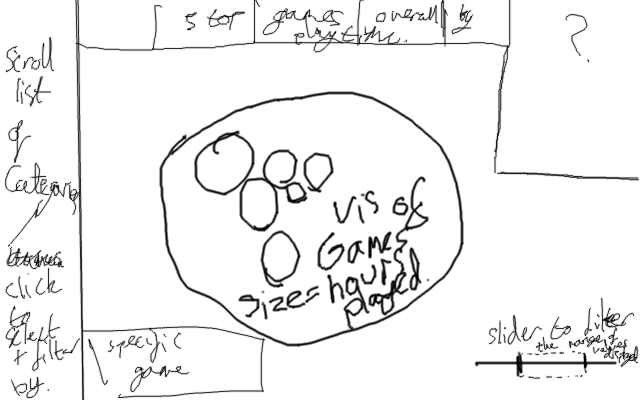 5 top games overall by
playtime.
?
Scroll
list
of
Categories
click
to
select
+ filter
by.
vis of
Games
size = hours
played.
specific
game
slider to filter
the range of
values
displayed